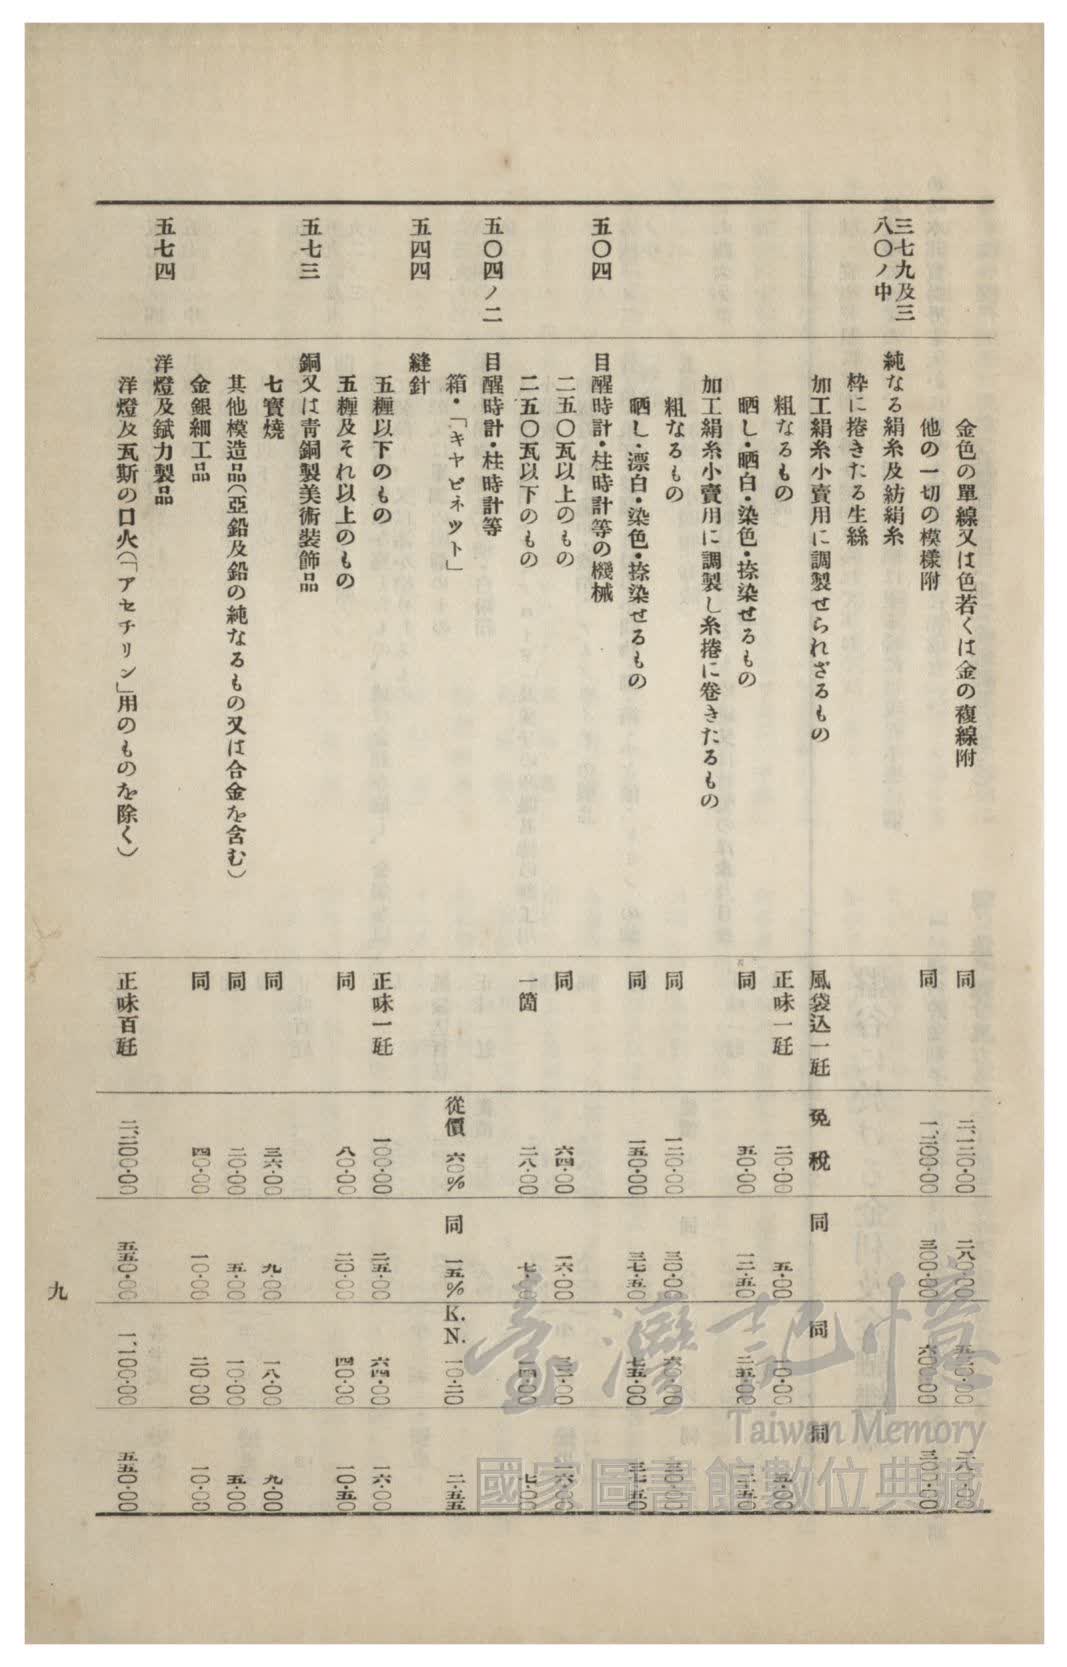 金色の單線又は色若くは金の複線附 同 二、一二〇・〇〇 二八〇・〇〇 五六〇・〇〇 二八〇・〇〇
他の一切の模樣附 同 一、二〇〇・〇〇 三〇〇・〇〇 六〇〇・〇〇 三〇〇・〇〇
三七九及三八〇ノ中 純なる絹糸及紡絹糸
枠に捲きたる生絲
加工絹糸小賣用に調製せられざるもの 風袋込一瓩 免稅 同 同 同
粗なるもの 正味一瓩 二〇・〇〇 五・〇〇 一〇・〇〇 五・〇〇
晒し・晒白・染色・捺染せるもの 同 五〇・〇〇 一二・五〇 二五・〇〇 一二・五〇
加工絹糸小賣用に調製し糸捲に卷きたるもの
粗なるもの 同 一二〇・〇〇 三〇・〇〇 六〇・〇〇 三〇・〇〇
晒し・漂白・染色・捺染せるもの 同 一五〇・〇〇 三七・五〇 七五・〇〇 三七・五〇
五〇四 目醒時計・柱時計等の機械
二五〇瓦以上のもの 同 六四・〇〇 一六・〇〇 三二・〇〇 一六・〇〇
二五〇瓦以下のもの 一箇 二八・〇〇 七・〇〇 一四・〇〇 七・〇〇
五〇四ノ二 目醒時計・柱時計等
箱・「キヤビネツト」 從價 六〇% 同 一五% K.N. 一〇・二〇 二・五五
五四四 縫針
五糎以下のもの 正味一瓩 一〇〇・〇〇 二五・〇〇 六四・〇〇 一六・〇〇
五糎及それ以上のもの 同 八〇・〇〇 二〇・〇〇 四〇・〇〇 一〇・五〇
五七三 銅又は靑銅製美術裝飾品
七寶燒 同 三六・〇〇 九・〇〇 一八・〇〇 九・〇〇
其他模造品(亞鉛及鉛の純なるもの又は合金を含む) 同 二〇・〇〇 五・〇〇 一〇・〇〇 五・〇〇
金銀細工品 同 四〇・〇〇 一〇・〇〇 二〇・〇〇 一〇・〇〇
五七四 洋燈及鉽力製品
洋燈及瓦斯の口火(「アセチリン」用のものを除く) 正味百瓩 二、二〇〇・〇〇 五五〇・〇〇 一、一〇〇・〇〇 五五〇・〇〇
九
臺灣記憶
Taiwan Memory
國家圖書館數位典藏